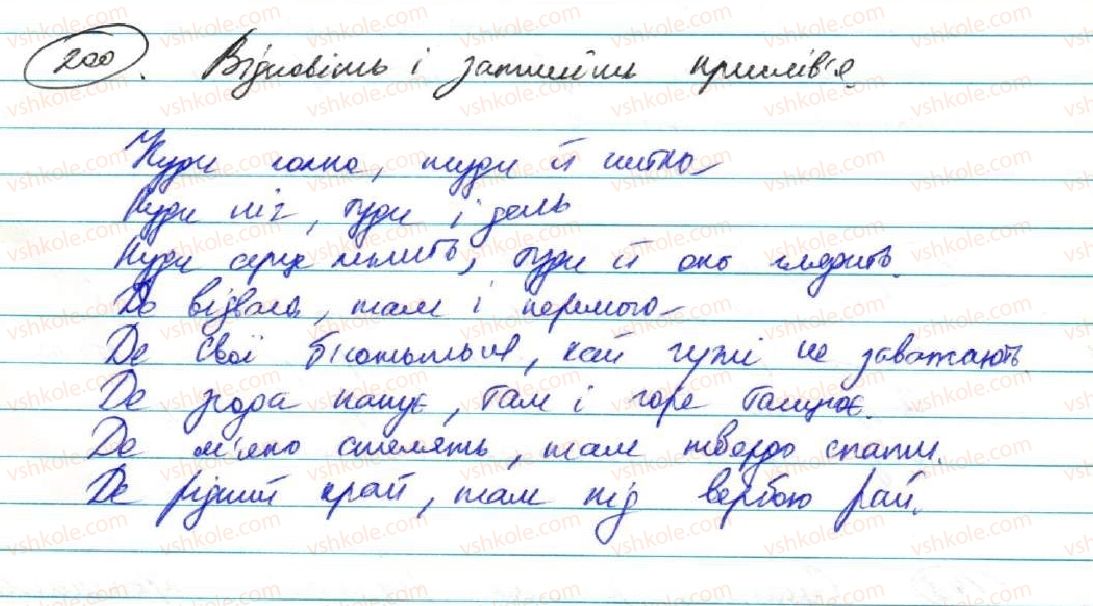 200. Відновіть і запишіть прислів'я.
Куди голка, туди й нитка.
Куди ніг, туди і день
Куди серце летить, туди й око глядить.
Де відвага, там і перемога.
Де свої б'ються, хай чужі не заважають.
Де згода панує, там і горе танцює.
Де м'яко стелять, там твердо спати.
Де рідний край, там під вербою рай.